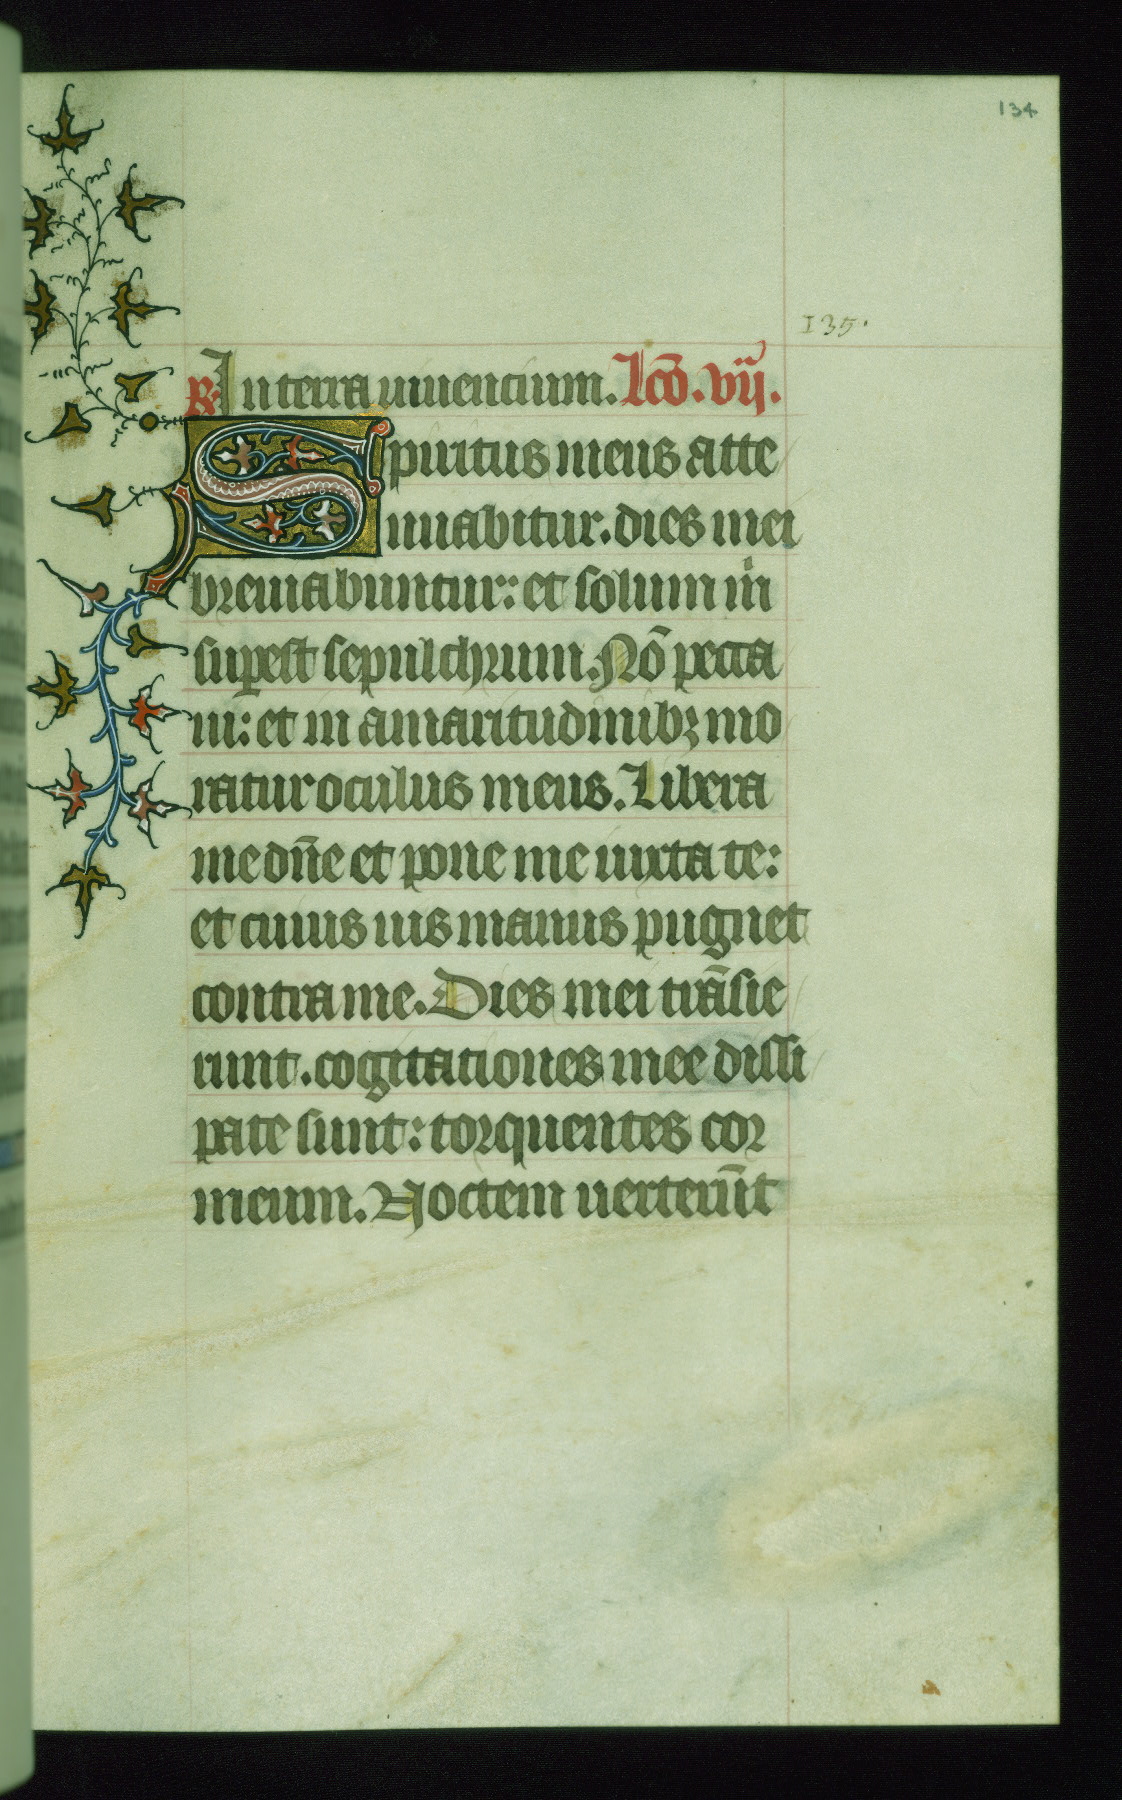 134
135.
℟ In terra viventium. Lcō. vij.
Spiritus meus atte
nuabitur. dies mei
breviabuntur: et solum m̄
suꝑest sepulchrum. Nō pecca
vi: et in amaritudinibꝫ mo
ratur oculus meus. Libera
me dn̄e et pone me iuxta te:
et cuius uis manus pugnet
contra me. Dies mei trāsie
runt. cogitationes mee dissi
pate sunt: torquentes cor
meum. Noctem verterūt